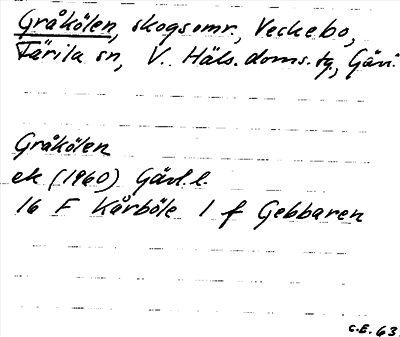 Gråkölen, skogsomr., Veckebo,
Färila sn, V. Häls. doms. tg., Gävl.
Gråkölen
ek (1960) Gävl. l.
16 F Kårböle 1 f Gebbaren
C.E. 63.